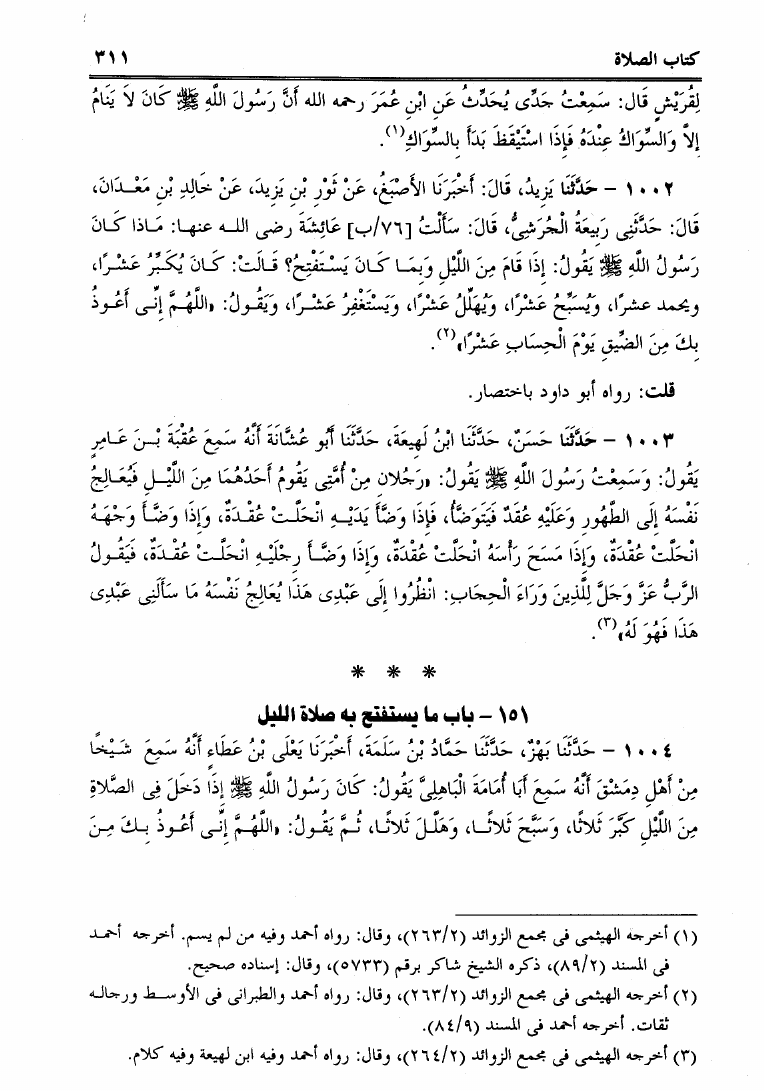 كتاب الصلاة ٣١١
لِقُرَيْشٍ قَالَ: سَمِعْتُ جَدِّى يُحَدِّثُ عَنِ ابْنِ عُمَرَ رحمه الله أَنَّ رَسُولَ اللَّهِ ﷺ كَانَ لاَ يَنَامُ
إِلاَّ وَالسِّوَاكُ عِنْدَهُ فَإِذَا اسْتَيْقَظَ بَدَأَ بِالسِّوَاكِ(١).
١٠٠٢ – حَدَّثَنَا يَزِيدُ، قَالَ: أَخْبَرَنَا الأَصْبَغُ، عَنْ ثَوْرِ بْنِ يَزِيدَ، عَنْ خَالِدِ بْنِ مَعْدَانَ،
قَالَ: حَدَّثَنِى رَبِيعَةُ الْجُرَشِىُّ، قَالَ: سَأَلْتُ [٧٦/ب] عَائِشَةَ رضى الله عنها: مَاذا كَانَ
رَسُولُ اللَّهِ ﷺ يَقُولُ: إِذَا قَامَ مِنَ اللَّيْلِ وَبِمَا كَانَ يَسْتَفْتِحُ؟ قَالَتْ: كَانَ يُكَبِّرُ عَشْرًا،
ويحمد عشرًا، وَيُسَبِّحُ عَشْرًا، وَيُهَلِّلُ عَشْرًا، وَيَسْتَغْفِرُ عَشْرًا، وَيَقُولُ: «اللَّهُمَّ إِنِّى أَعُوذُ
بِكَ مِنَ الضِّيقِ يَوْمَ الْحِسَابِ عَشْرًا»(٢).
قلت: رواه أبو داود باختصار.
١٠٠٣ – حَدَّثَنَا حَسَنٌ، حَدَّثَنَا ابْنُ لَهِيعَةَ، حَدَّثَنَا أَبُو عُشَّانَةَ أَنَّهُ سَمِعَ عُقْبَةَ بْنَ عَامِرٍ
يَقُولُ: وَسَمِعْتُ رَسُولَ اللَّهِ ﷺ يَقُولُ: «رَجُلان مِنْ أُمَّتِى يَقُومُ أَحَدُهُمَا مِنَ اللَّيْلِ فَيُعَالِجُ
نَفْسَهُ إِلَى الطَّهُورِ وَعَلَيْهِ عُقَدٌ فَيَتَوَضَّأُ، فَإِذَا وَضَّأَ يَدَيْهِ انْحَلَّتْ عُقْدَةٌ، وَإِذَا وَضَّأَ وَجْهَهُ
انْحَلَّتْ عُقْدَةٌ، وَإِذَا مَسَحَ رَأْسَهُ انْحَلَّتْ عُقْدَةٌ، وَإِذَا وَضَّأَ رِجْلَيْهِ انْحَلَّتْ عُقْدَةٌ، فَيَقُولُ
الرَّبُّ عَزَّ وَجَلَّ لِلَّذِينَ وَرَاءَ الْحِجَابِ: انْظُرُوا إِلَى عَبْدِى هَذَا يُعَالِجُ نَفْسَهُ مَا سَأَلَنِى عَبْدِى
هَذَا فَهُوَ لَهُ»(٣).
* * *
١٥١ – باب ما يستفتح به صلاة الليل
١٠٠٤ – حَدَّثَنَا بَهْزٌ، حَدَّثَنَا حَمَّادُ بْنُ سَلَمَةَ، أَخْبَرَنَا يَعْلَى بْنُ عَطَاءٍ أَنَّهُ سَمِعَ شَيْخًا
مِنْ أَهْلِ دِمَشْقَ أَنَّهُ سَمِعَ أَبَا أُمَامَةَ الْبَاهِلِىَّ يَقُولُ: كَانَ رَسُولُ اللَّهِ ﷺ إِذَا دَخَلَ فِى الصَّلاةِ
مِنَ اللَّيْلِ كَبَّرَ ثَلاثًا، وَسَبَّحَ ثَلاثًا، وَهَلَّلَ ثَلاثًا، ثُمَّ يَقُولُ: «اللَّهُمَّ إِنِّى أَعُوذُ بِكَ مِنَ
(١) أخرجه الهيثمى فى مجمع الزوائد (٢٦٣/٢)، وقال: رواه أحمد وفيه من لم يسم. أخرجه أحمد
فى المسند (٨٩/٢)، ذكره الشيخ شاكر برقم (٥٧٣٣)، وقال: إسناده صحيح.
(٢) أخرجه الهيثمى فى مجمع الزوائد (٢٦٣/٢)، وقال: رواه أحمد والطبرانى فى الأوسط ورجاله
ثقات. أخرجه أحمد فى المسند (٨٤/٩).
(٣) أخرجه الهيثمى فى مجمع الزوائد (٢٦٤/٢)، وقال: رواه أحمد وفيه ابن لهيعة وفيه كلام.